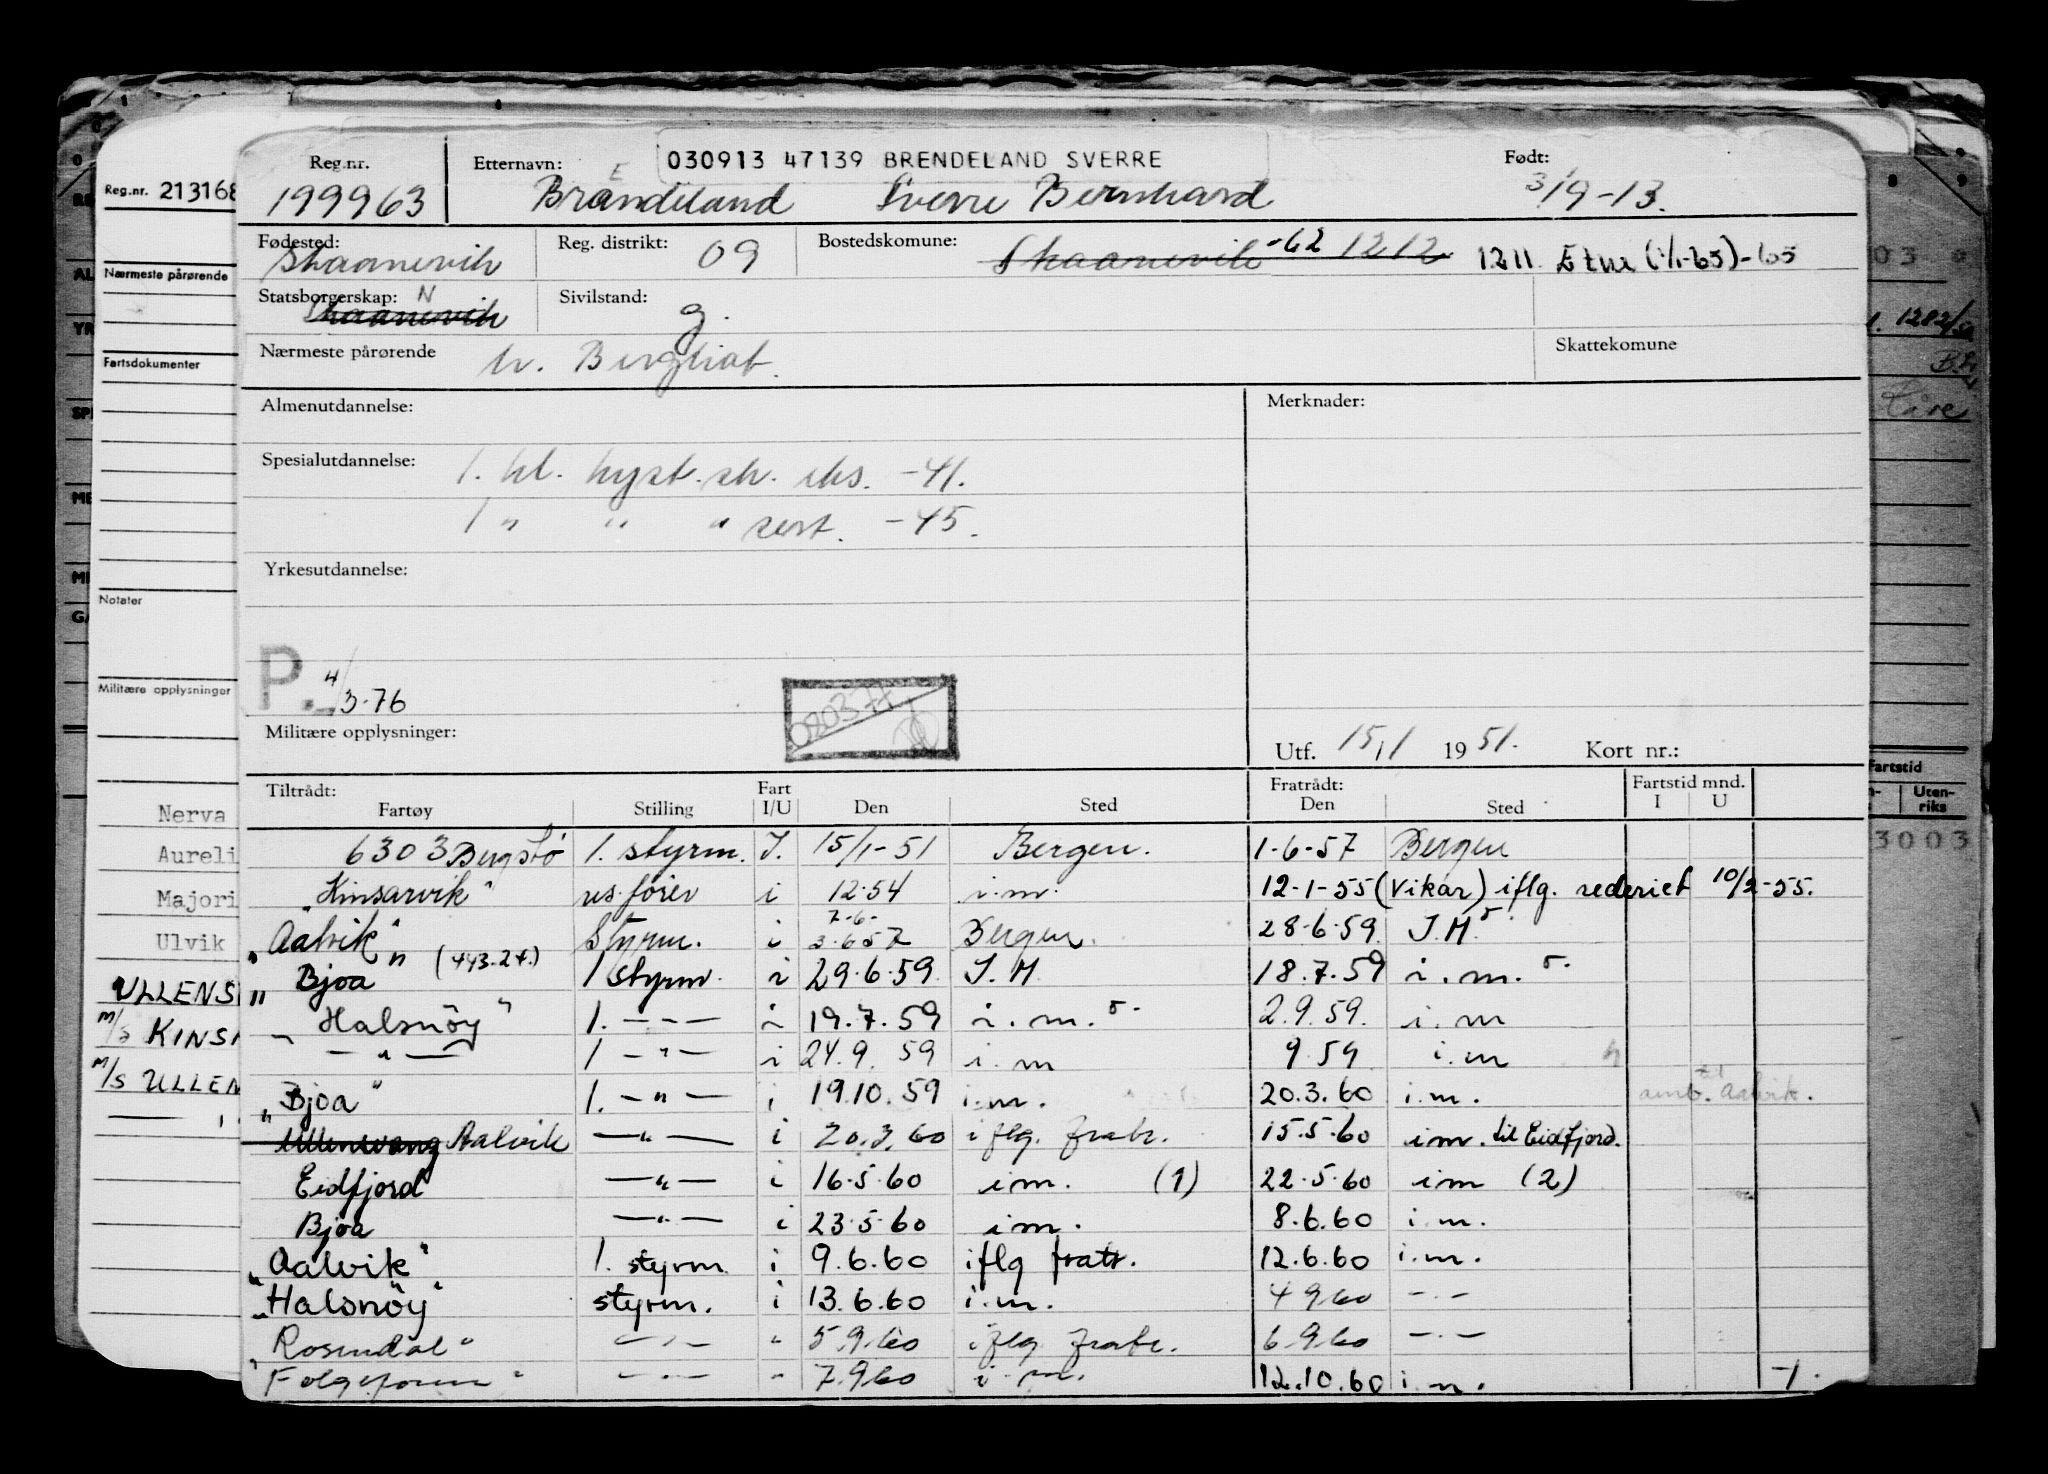 Reg.nr. Etternavn: 030913 47139 BRENDELAND SVERRE Født:
199963 Brandeland E Sverre Bernhard 3/9-13.
Fødested: Reg. distrikt: Bostedskomune:
Skaanevik 09 Skaanevik -62 1212 1211 Etne (1/1-65)-65
Statsborgerskap: N Sivilstand:
Skaanevik g.
Nærmeste pårørende Skattekomune
h. Bergliot.
Almenutdannelse: Merknader:
Spesialutdannelse: 1. kl. kyst.sk. eks. -41.
1 " " " sert. -45.
Yrkesutdannelse:
P. 4/3-76
080377
Militære opplysninger:
Utf. 15/1 1951. Kort nr.:
Tiltrådt: Fart Fratrådt: Fartstid mnd.
Fartøy Stilling I/U Den Sted Den Sted I U
6303 Bergstø 1. styrm. I. 15/1-51 Bergen. 1-6-57 Bergen
"Kinsarvik" res.fører i 12.54 i.m. 12-1-55 (Vikar) iflg. rederiet 10/2-55.
7-6-
"Aalvik" Styrm. i 3.6 57 Bergen. 28-6-59. I.H.
" Bjoa " (443.24.) 1 styrm. i 29.6.59. I.H. 18.7.59 i.m.
" Halsnöy " 1. - - - i 19.7.59 i.m. 2.9.59. i.m
— " — 1 — " — i 24.9. 59 i.m 9.59 i.m
" Bjoa " 1. — " — i 19.10.59 i.m. 20.3.60 i.m. Aalvik.
Ullensvang Aalvik — " — i 20.3.60 iflg. fratr. 15.5.60 im. til Eidfjord.
Eidfjord — " — i 16.5.60 im. (1) 22.5.60 im (2)
Bjoa — " — i 23.5.60 im. 8.6.60 i.m.
"Aalvik" 1. styrm. i 9.6.60 iflg fratr. 12.6.60 i.m.
"Halsnöy" styrm. i 13.6.60 i.m. 4 9 60 — . —
Rosendal" — . — " 5.9.60 iflg. fratr. 6 9 60 — . —
"Folgefonn" — . — " 7.9 60 i.m. 12.10.60 i.m. -1.
Reg.nr. 213168
Nærmeste pårørende
Fartsdokumenter
Notater
Militære opplysninger
Nerva
Aureli
Majori
Ulvik
ULLENS
M/S KINS
M/S ULLEN
03
1282/
Fartstid
Uten-
riks
3003